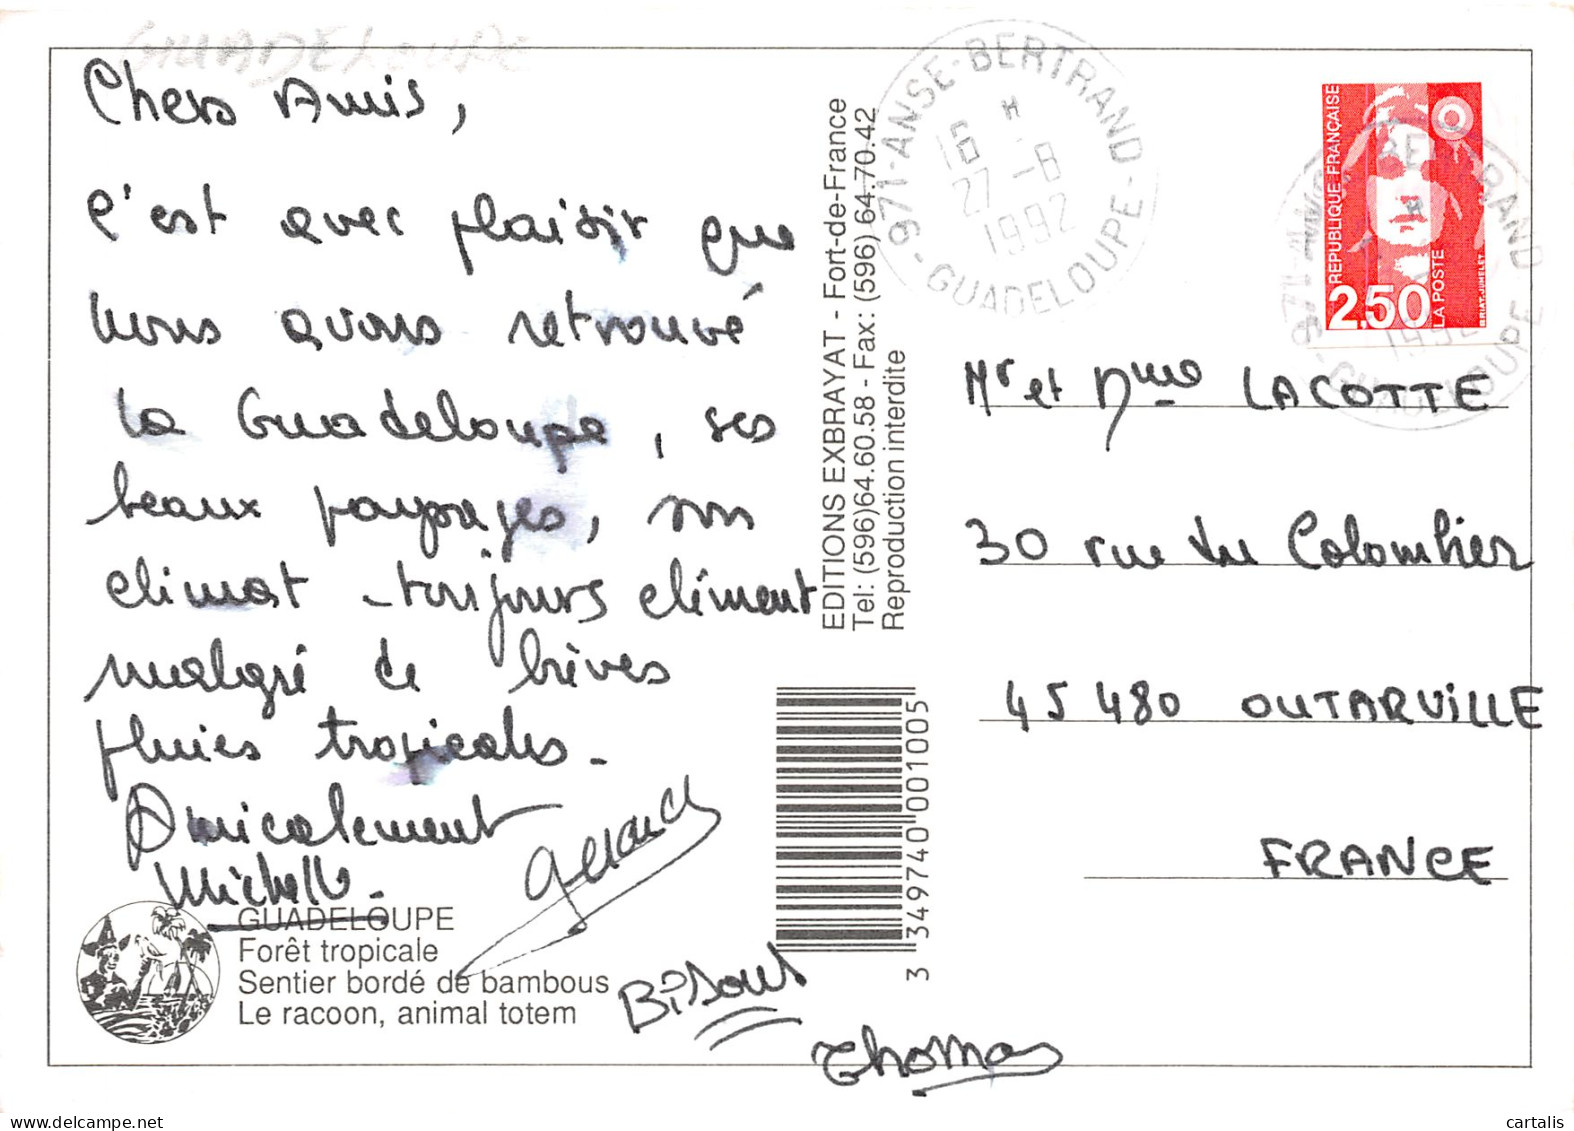 GUADELOUPE
Chers Amis,
c'est avec plaisir que
nous avons retrouvé
la Guadeloupe, ses
beaux paysages, son
climat toujours clément
malgré de brèves
pluies tropicales.
Amicalement
Michelle.
Bisous
Thomas
GUADELOUPE
Forêt tropicale
Sentier bordé de bambous
Le racoon, animal totem
EDITIONS EXBRAYAT - Fort-de-France
Tel: (596)64.60.58 - Fax: (596) 64.70.42
Reproduction interdite
3 349740 001005
971-ANSE-BERTRAND
16 H
27 -8
1992
- GUADELOUPE -
RÉPUBLIQUE FRANÇAISE
2,50
LA POSTE
BRIAT-JUMELET
Mr et Mme LACOTTE
30 rue du Colombier
45 480 OUTARVILLE
FRANCE
cartalis.com